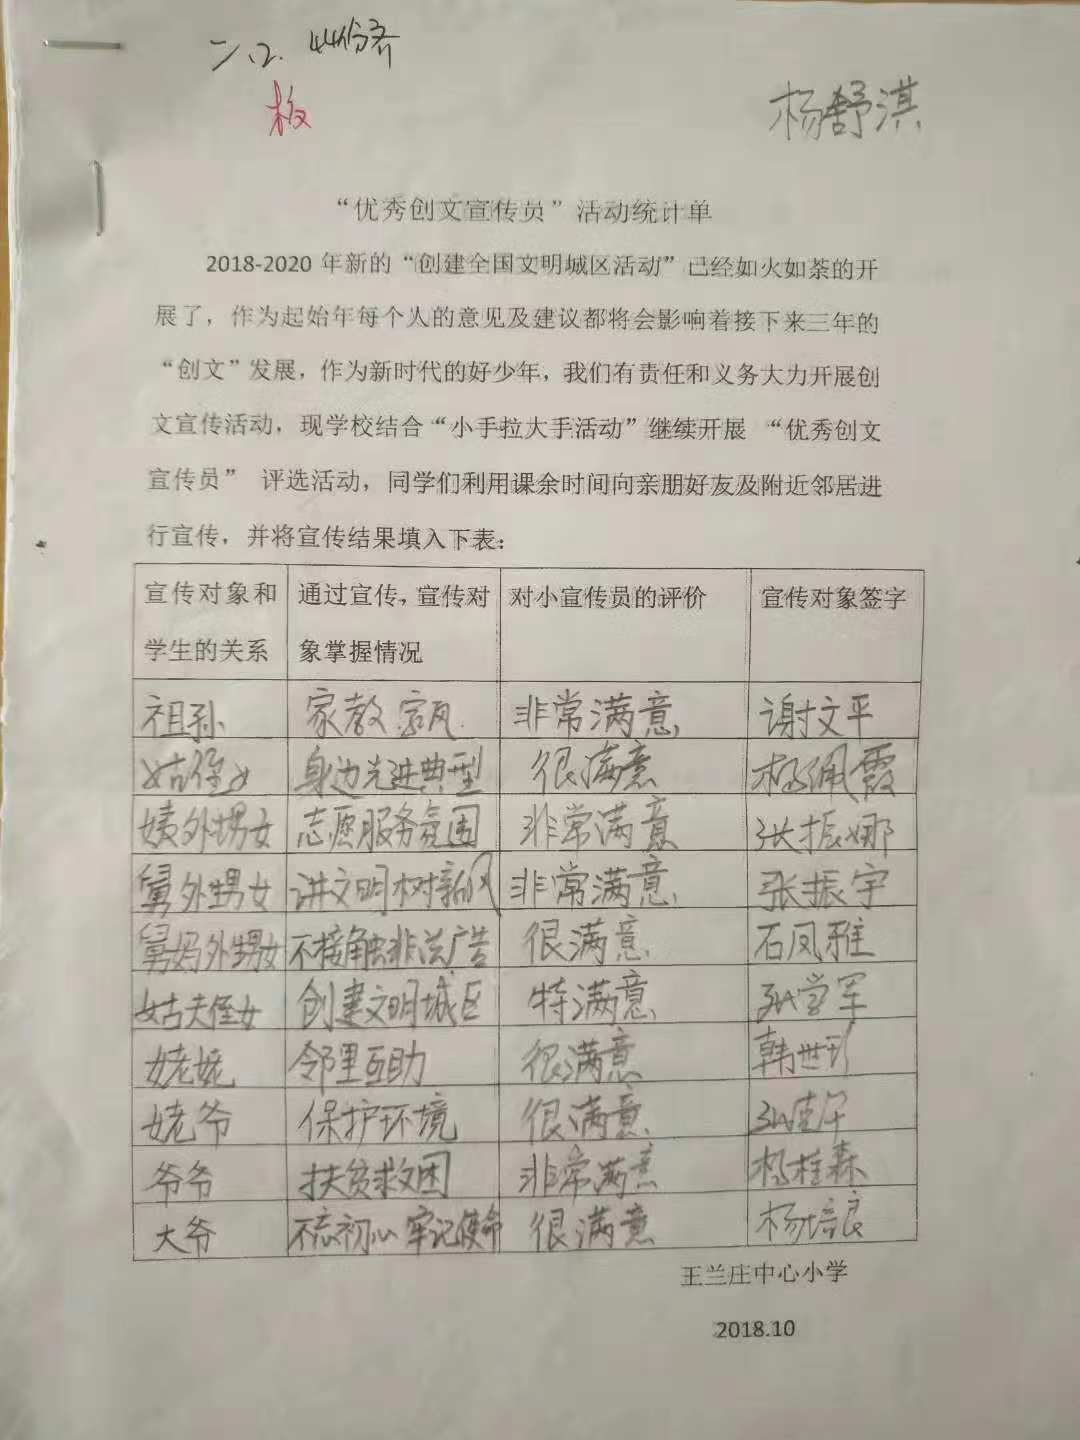 二、2. 44份齐
板
杨舒淇
“优秀创文宣传员”活动统计单
2018-2020 年新的“创建全国文明城区活动”已经如火如荼的开
展了，作为起始年每个人的意见及建议都将会影响着接下来三年的
“创文”发展，作为新时代的好少年，我们有责任和义务大力开展创
文宣传活动，现学校结合“小手拉大手活动”继续开展 “优秀创文
宣传员” 评选活动，同学们利用课余时间向亲朋好友及附近邻居进
行宣传，并将宣传结果填入下表：
宣传对象和 通过宣传，宣传对 对小宣传员的评价 宣传对象签字
学生的关系 象掌握情况
祖孙 家教家风 非常满意 谢文平
姑侄女 身边先进典型 很满意 杨佩霞
姨外甥女 志愿服务氛围 非常满意 张振娜
舅外甥女 讲文明树新风 非常满意 张振宇
舅妈外甥女 不接触非法广告 很满意 石凤雅
姑夫侄女 创建文明城区 特满意 孙学军
姥姥 邻里互助 很满意 韩世珍
姥爷 保护环境 很满意
爷爷 扶贫救困 非常满意 杨桂森
大爷 不忘初心牢记使命 很满意 杨培良
王兰庄中心小学
2018.10